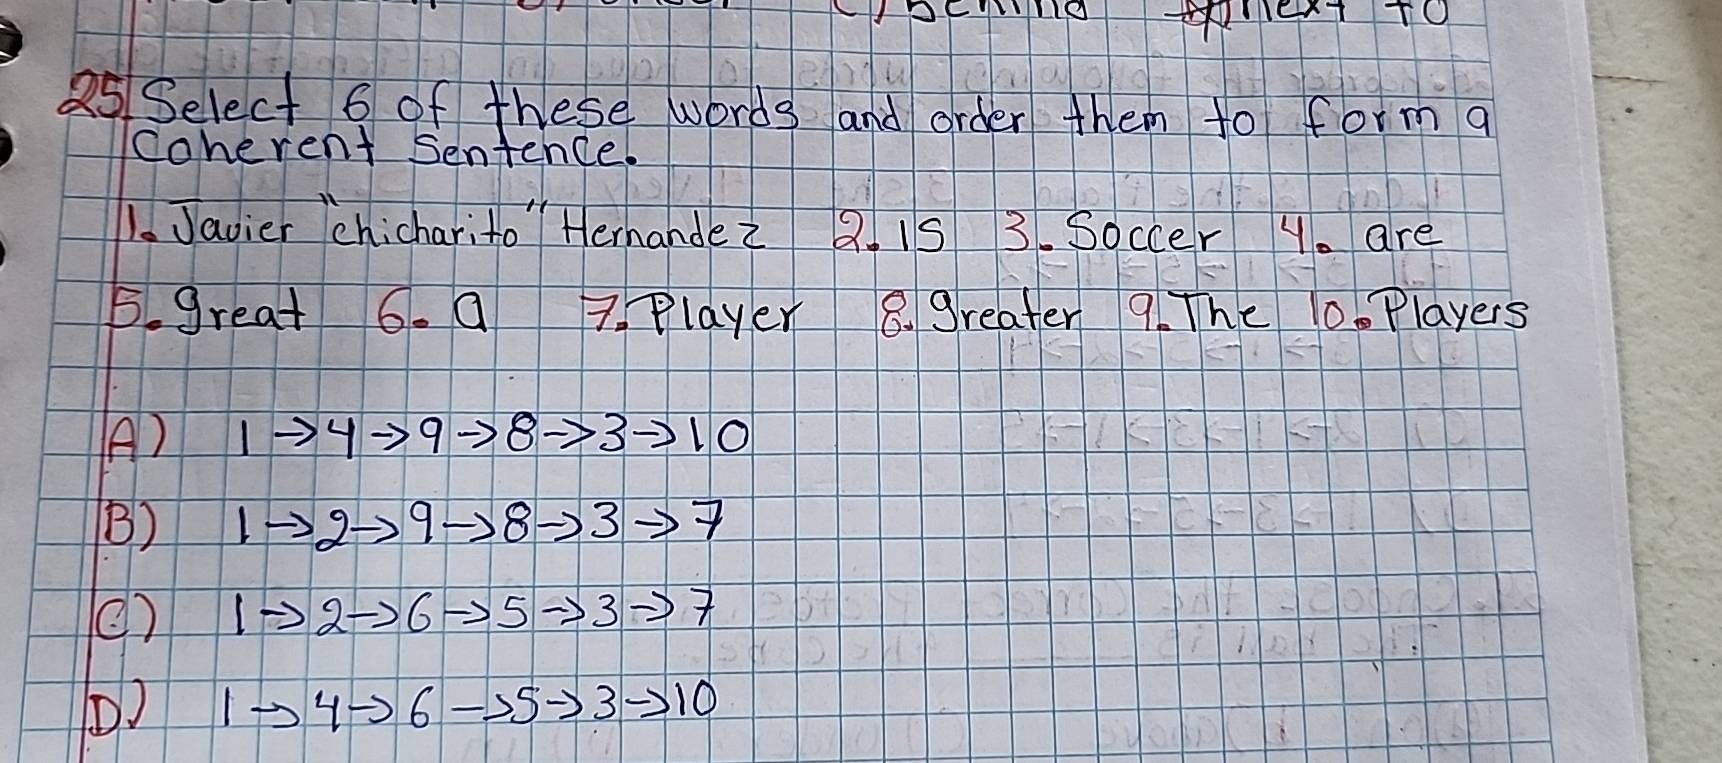 behind next to
25. Select 6 of these words and order them to form a
Coherent Sentence.
1. Javier "chicharito" Hernandez 2. is 3. Soccer 4. are
5. great 6. a 7. Player 8. greater 9. The 10. Players
A) 1→4→9→8→3→10
B) 1→2→9→8→3→7
C) 1→2→6→5→3→7
D) 1→4→6→5→3→10